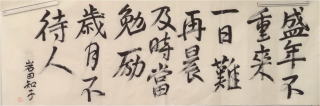 盛年不
重来
一日難
再晨
及時當
勉励
歳月不
待人
岩田和子